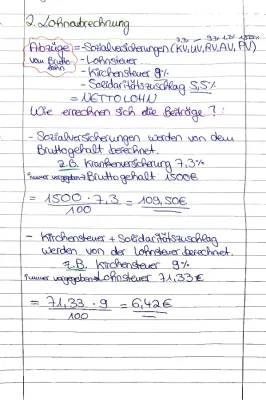 2. Lohnabrechnung
Abzüge = - Sozialversicherungen (KV, UV, RV, AV, PV)
vom Brutto - Lohnsteuer
lohn - Kirchensteuer 9%
- Solidaritätszuschlag 5,5%
= NETTOLOHN
Wie errechnen sich die Beträge?:
- Sozialversicherungen werden von dem
Bruttogehalt berechnet.
z.B. Krankenversicherung 7,3%
immer vorgegeben Bruttogehalt 1500€
= 1500 · 7,3 = 109,50€
100
- Kirchensteuer + Solidaritätszuschlag
werden von der Lohnsteuer berechnet.
z.B. Kirchensteuer 9%
immer vorgegeben Lohnsteuer 71,33€
= 71,33 · 9 = 6,42€
100